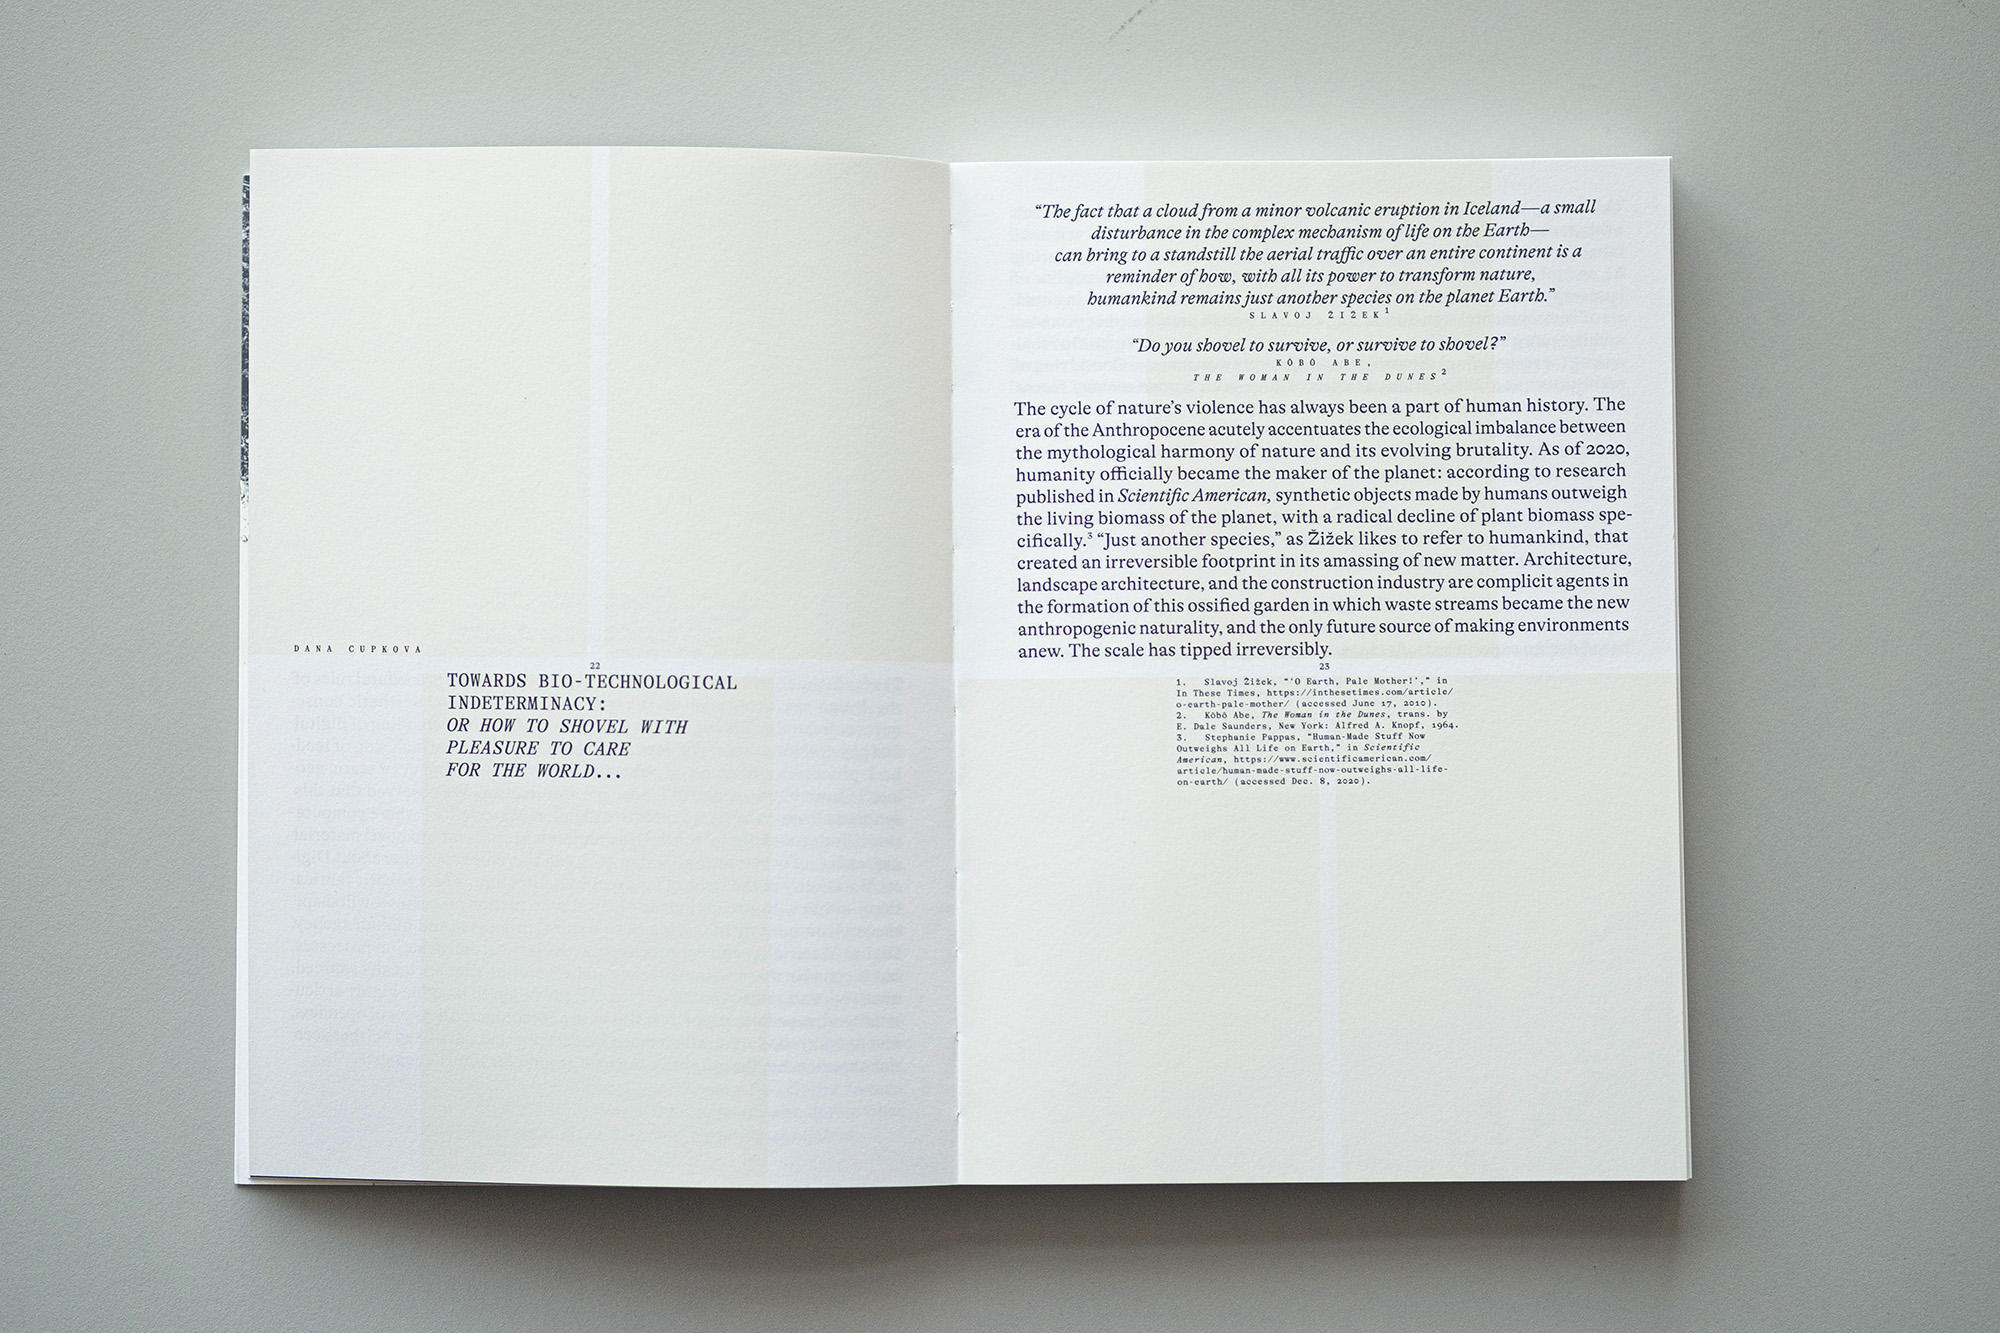 DANA CUPKOVA
22
TOWARDS BIO-TECHNOLOGICAL
INDETERMINACY:
OR HOW TO SHOVEL WITH
PLEASURE TO CARE
FOR THE WORLD...
“The fact that a cloud from a minor volcanic eruption in Iceland—a small
disturbance in the complex mechanism of life on the Earth—
can bring to a standstill the aerial traffic over an entire continent is a
reminder of how, with all its power to transform nature,
humankind remains just another species on the planet Earth.”
SLAVOJ ŽIŽEK¹
“Do you shovel to survive, or survive to shovel?”
KŌBŌ ABE,
THE WOMAN IN THE DUNES²
The cycle of nature’s violence has always been a part of human history. The
era of the Anthropocene acutely accentuates the ecological imbalance between
the mythological harmony of nature and its evolving brutality. As of 2020,
humanity officially became the maker of the planet: according to research
published in Scientific American, synthetic objects made by humans outweigh
the living biomass of the planet, with a radical decline of plant biomass spe-
cifically.³ “Just another species,” as Žižek likes to refer to humankind, that
created an irreversible footprint in its amassing of new matter. Architecture,
landscape architecture, and the construction industry are complicit agents in
the formation of this ossified garden in which waste streams became the new
anthropogenic naturality, and the only future source of making environments
anew. The scale has tipped irreversibly.
23
1. Slavoj Žižek, “‘O Earth, Pale Mother!’,” in
In These Times, https://inthesetimes.com/article/
o-earth-pale-mother/ (accessed June 17, 2010).
2. Kōbō Abe, The Woman in the Dunes, trans. by
E. Dale Saunders, New York: Alfred A. Knopf, 1964.
3. Stephanie Pappas, “Human-Made Stuff Now
Outweighs All Life on Earth,” in Scientific
American, https://www.scientificamerican.com/
article/human-made-stuff-now-outweighs-all-life-
on-earth/ (accessed Dec. 8, 2020).